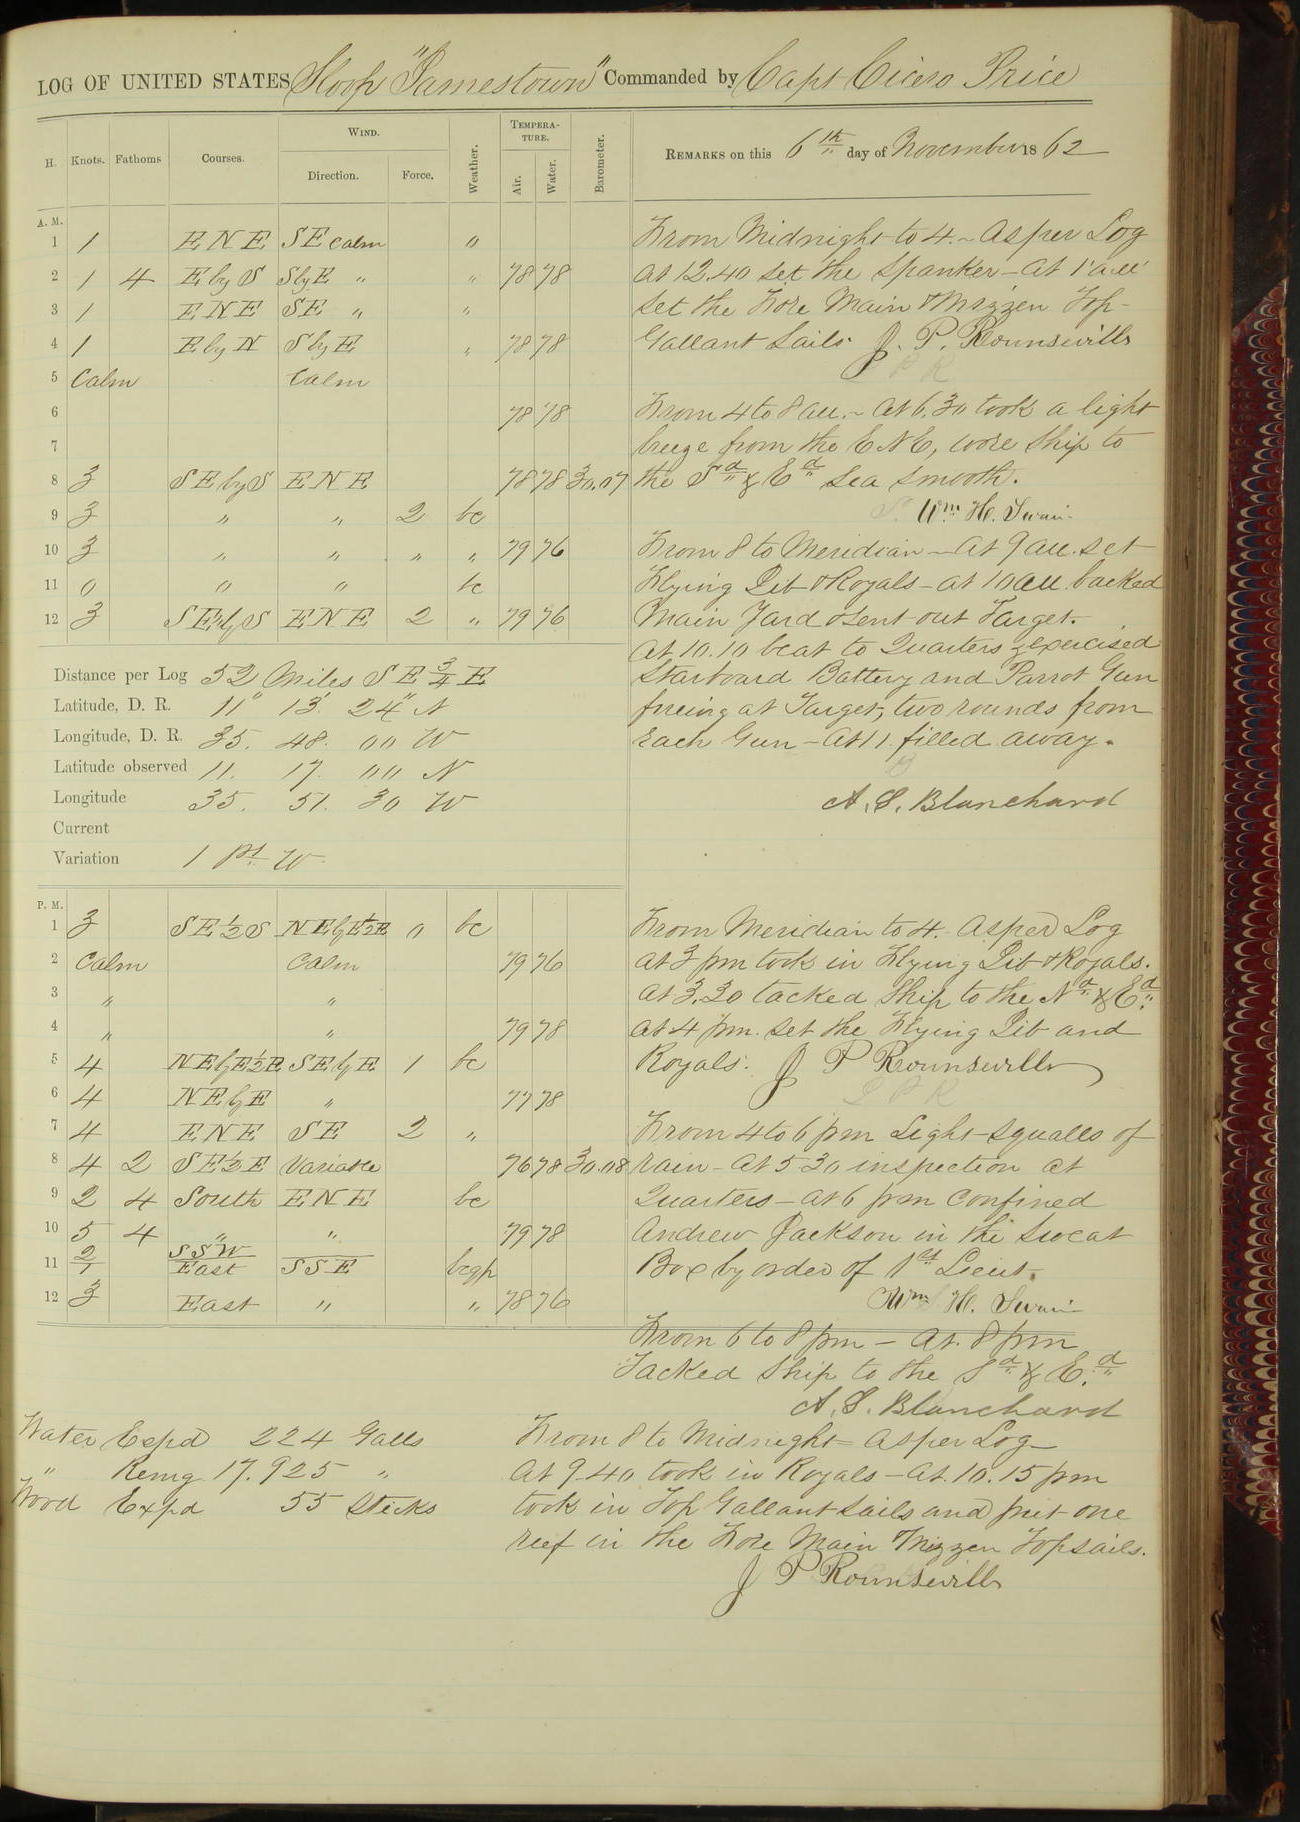 LOG OF UNITED STATES Sloop "Jamestown" Commanded by Capt Cicero Price
H. Knots. Fathoms Courses. WIND. Direction. Force. Weather. TEMPERATURE. Air. Water. Barometer. REMARKS on this 6th day of November 1862
A. M.
1 1 ENE SE calm 0
2 1 4 E by S S by E " " 78 78
3 1 ENE SE " "
4 1 E by N S by E " 78 78
5 Calm Calm
6 78 78
7
8 3 SE by S ENE 78 78 30.07
9 3 " " 2 bc
10 3 " " " " 79 76
11 0 " " bc
12 3 SE by S ENE 2 " 79 76
From Midnight to 4. - As per Log
at 12.40 set the Spanker - At 1 am
set the Fore Main & Mizzen Top-
Gallant Sails. J. P. Rounsevills
From 4 to 8 am. - At 6.30 took a light
breeze from the ENE, wore Ship to
the Sd & Ed Sea smooth.
Wm H. Swain
From 8 to Meridian - At 9 am. set
Flying Jib & Royals - at 10 am. backed
Main Yard & sent out Target.
At 10.10 beat to Quarters & exercised
Starboard Battery and Parrot Gun
fireing at Target, two rounds from
Each Gun - At 11 filled away.
A. S. Blanchard
Distance per Log 52 Miles SE 3/4 E
Latitude, D. R. 11° 13' 24" N
Longitude, D. R. 35. 48. 00 W
Latitude observed 11. 17. 00 N
Longitude 35. 51. 30 W
Current
Variation 1 Pt W
P. M.
1 3 SE 1/2 S NE by E 1/2 E 0 bc
2 Calm Calm 79 76
3 " "
4 " " 79 78
5 4 NE by E 1/2 E SE by E 1 bc
6 4 NE by E " 77 78
7 4 ENE SE 2 "
8 4 2 SE 1/2 E Variable 76 78 30.08
9 2 4 South ENE bc
10 5 4 " " 79 78
11 2/1 SSW/East SSE bcqp
12 3 East " " 78 76
From Meridian to 4. As per Log
At 3 pm took in Flying Jib & Royals.
At 3.30 tacked Ship to the Nd & Ed
At 4 pm. set the Flying Jib and
Royals. J P Rounsevills
From 4 to 6 pm Light squalls of
rain - At 5 30 inspection at
Quarters - At 6 pm confined
Andrew Jackson in the Sweat
Box by order of 1st Lieut.
Wm H. Swain
From 6 to 8 pm - At. 8 pm
Tacked Ship to the Sd & Ed
A. S. Blanchard
From 8 to Midnight = As per Log -
At 9-40 took in Royals - At. 10.15 pm
took in Top Gallant sails and put one
reef in the Fore Main & Mizzen Topsails.
J P Rounsevills
Water Expd 224 Galls
" Remg 17.925 "
Wood Expd 55 Sticks